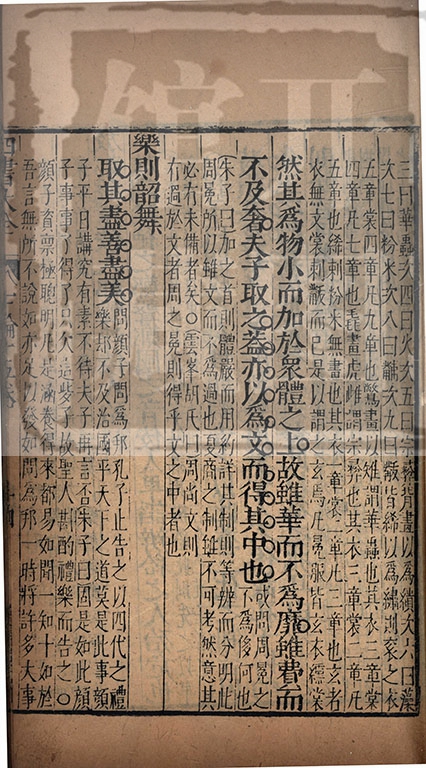 三曰華蟲次四曰火次五曰宗彝皆畫以爲繢次六曰藻
次七曰粉米次八曰黼次九曰黻皆絺以爲繡則袞之衣
五章裳四章凡九章也鷩畫以雉謂華蟲也其衣三章裳
四章凡七章也毳畫虎蜼謂宗彝也其衣三章裳二章凡
五章也絺刺粉米無畫也其衣一章裳二章凡三章也玄者
衣無文裳刺黻而已是以謂之玄焉凡冕服皆玄衣纁裳
然其爲物小而加於衆體之上故雖華而不爲靡雖費而
不及奢夫子取之蓋亦以爲文而得其中也
或問周冕之
不爲侈何也
朱子曰加之首則體嚴而用約詳其制則等辨而分明此
周冕所以雖文而不爲過也夏商之制雖不可考然意其
必有未備者矣○雲峯胡氏曰周尚文則
有過於文者周之冕則得乎文之中者也
樂則韶舞
取其盡善盡美
問顔子爲邦孔子止告之以四代之禮
樂却不及治國平天下之道莫是此事顔
子平日講究有素不待夫子再言否朱子曰固是如此顔
子事事了得了只欠這些子故聖人斟酌禮樂而告之○
顔子資稟極聰明凡是涵養得來都易如聞一知十如於
吾言無所不說如亦足以發如問爲邦一時將許多大事